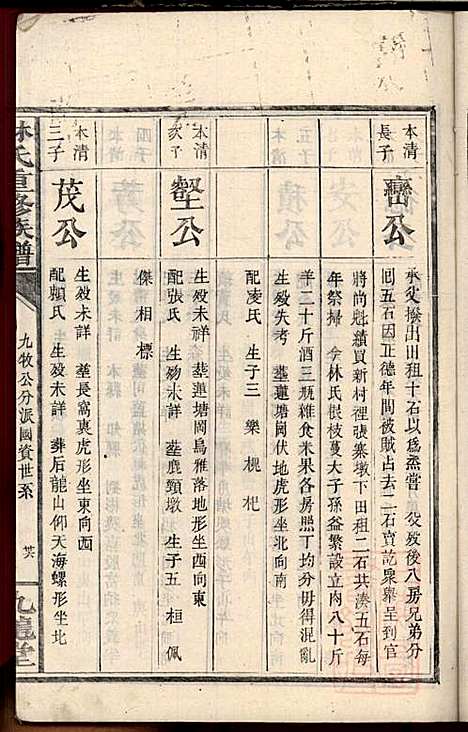 本清長子
巒公
承父撥出田租十石以為蒸嘗 父歿後八房兄弟分
回五石因正德年間被賊占去二石賣訖眾舉呈到官
將尚魁續買新村裡張寨墩下田租二石共湊五石每
年祭掃 林氏根枝蔓大子孫益繁設立肉八十斤
羊二十斤酒三瓶雜食米果各房照丁均分毋得混亂
生歿失考 塟蓮塘岡伏地虎形坐北向南
配凌氏 生子三 樂 槐 杞
本清次子
壑公
生歿未詳 塟蓮塘岡烏雅落地形坐西向東
配張氏 生歿未詳 塟鹿頸墩 生子五 桓 佩
傑 相 標
本清三子
茂公
生歿未詳 塟長窩裏虎形坐東向西
配賴氏 生歿未詳 葬后龍山仰天海螺形坐北
林氏重修族譜
九牧公分派國資世系
九龍堂